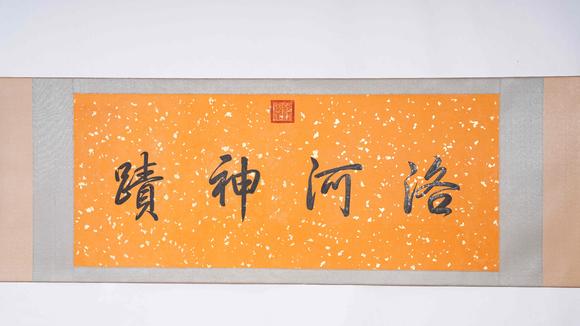 洛河神蹟